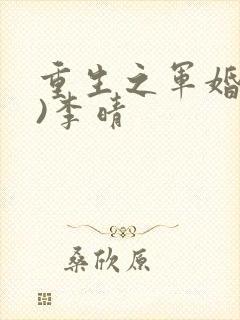 重生之军婚
)李晴
桑欣原